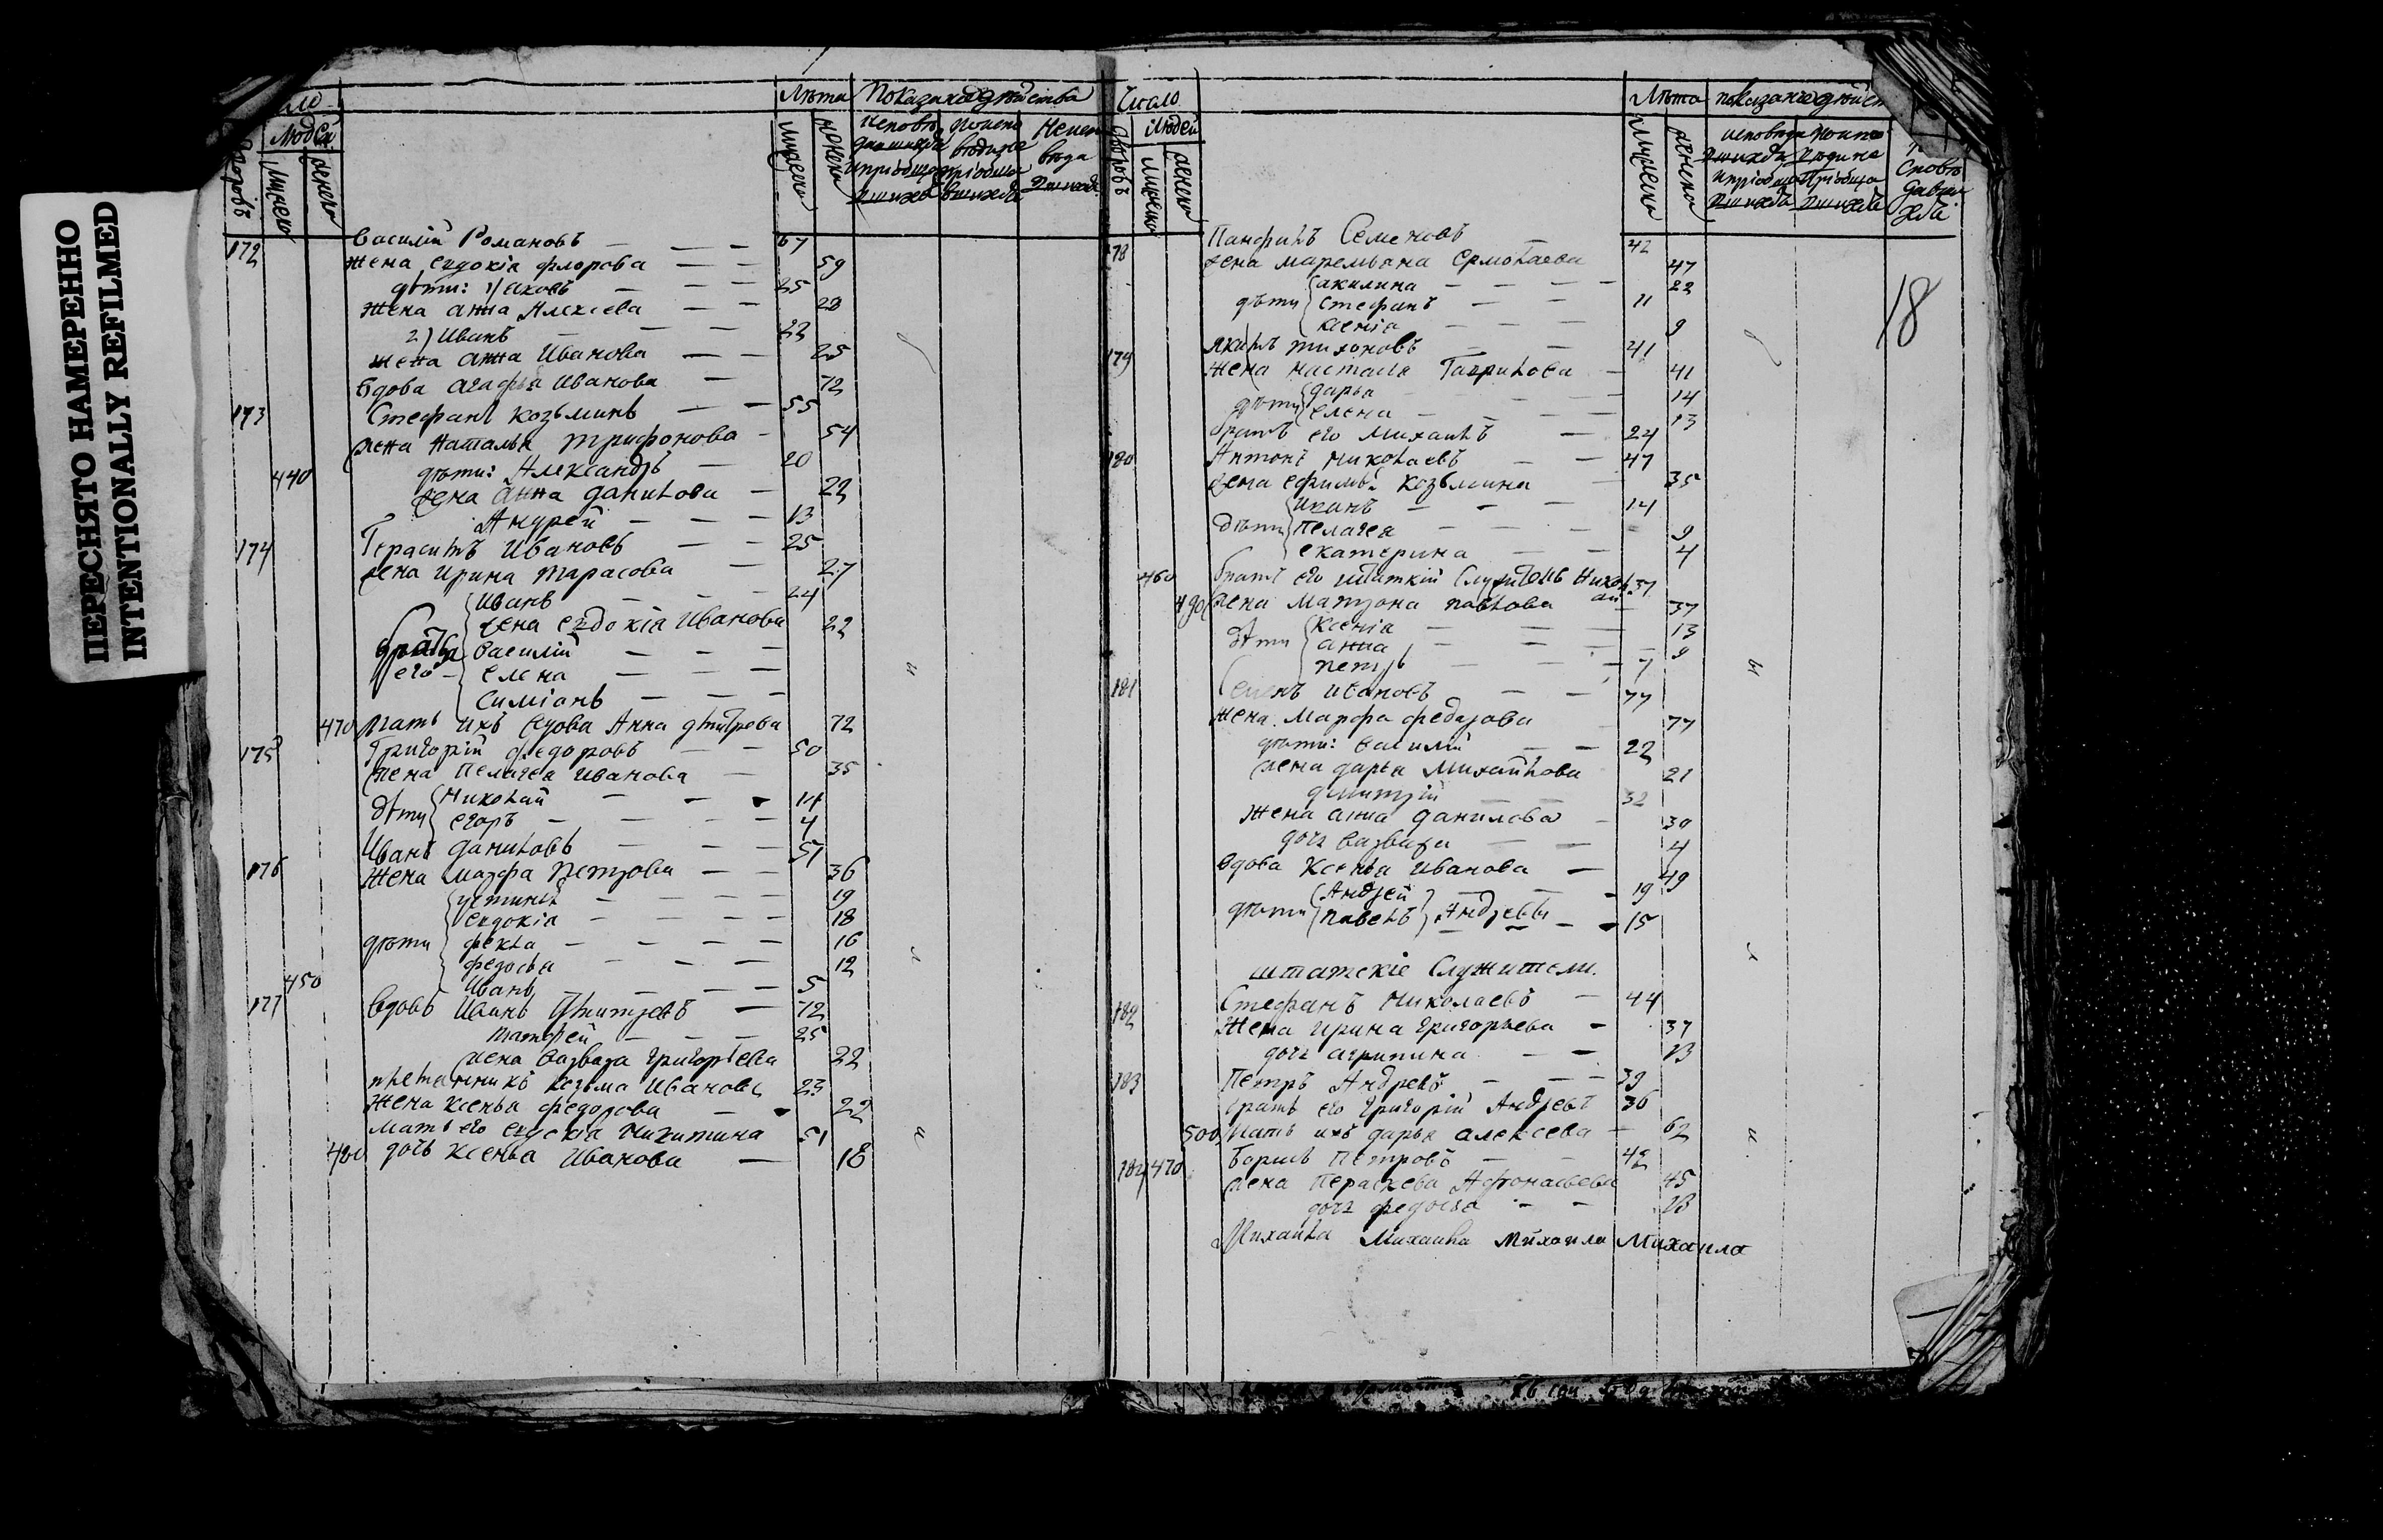 ПЕРЕСНЯТО НАМЕРЕННО
INTENTIONALLY REFILMED
Лѣта Показание дѣйства
людей
мужеска женска
172 Василій Романовъ — — — 67
жена Евдокіа флорова — — 59
дѣти: 1) Іаковъ — — — 25
жена анна Алексіева — — 28
2) Иванъ — — — 22
жена анна Иванова — — 25
Вдова агафья Иванова — 72
173 Стефанъ козьминъ — — 55
жена Наталья Трифонова — 54
440 дѣти: Александръ — 20
жена анна данилова — 22
Андрей — — — 13
174 Герасимъ Ивановъ — — 25
жена ирина тарасова — 27
Иванъ — — — 24
жена евдокіа Иванова 22
братья Василій — — —
его Елена — — —
Симіонъ — — —
470 мать ихъ вдова Анна дмитрева 72
175 Григорій федоровъ — — 50
жена пелагея Иванова — 35
дѣти Николай — — — 14
егоръ — — — — 4
176 Иванъ даниловъ — — — 51
жена марфа Петрова — — 36
устинья — — — — 19
евдокіа — — — — 18
дѣти фекла — — — — 16
федосья — — — 12
450 Иванъ — — — — 5
177 вдовъ Иванъ дмитревъ — 72
матфей — — — 25
жена варвара григорьева 22
племянникъ козьма Ивановъ 23
жена ксенья федорова — — 22
мать его евдокіа Никитина 51
480 дочь ксенья Иванова — 18
Число Лѣта показание дѣйст
людей
дворовъ мужеска женска мужеска женска
18
178 Панфилъ Семеновъ — 42
жена маремьяна Ермолаева 47
акилина — — — — 22
дѣти стефанъ — — 11
ксеніа — — — 9
179 Якимъ тихоновъ — — 41
жена настасья Гаврилова — 41
дарья — — — 14
дѣти елена — — — — 13
братъ его Михаилъ — 24
180 Антонъ николаевъ — — 47
жена ефимья козьмина — 35
Иванъ — — — 14
дѣти пелагея — — — — 9
екатерина — — 4
460 братъ его штатскій служитель Никол. ай 37
490 жена матрона павлова — 37
ксеніа — — — 13
дѣти анна — — — — 9
петръ — — — 7
181 Семенъ ивановъ — — 77
жена марфа федорова — 77
дѣти: василій — — 22
жена дарья Михайлова 21
дмитрій — — 32
жена анна данилова — 30
дочь варвара — — 4
вдова ксенья иванова — 49
Андрей — — — 19
дѣти павелъ Андреевы — — 15
штатскіе служители.
182 Стефанъ Николаевъ — 44
жена ирина григорьева — 37
дочь агрипина — — 13
183 Петръ Андревъ — — — 39
братъ его григорій Андревъ 36
500 мать ихъ дарья алексеева — 62
184 470 Борисъ Петровъ — — 42
жена Параскева Афонасьева 45
дочь федосья — — 13
Михаила Михаила михаила михаила